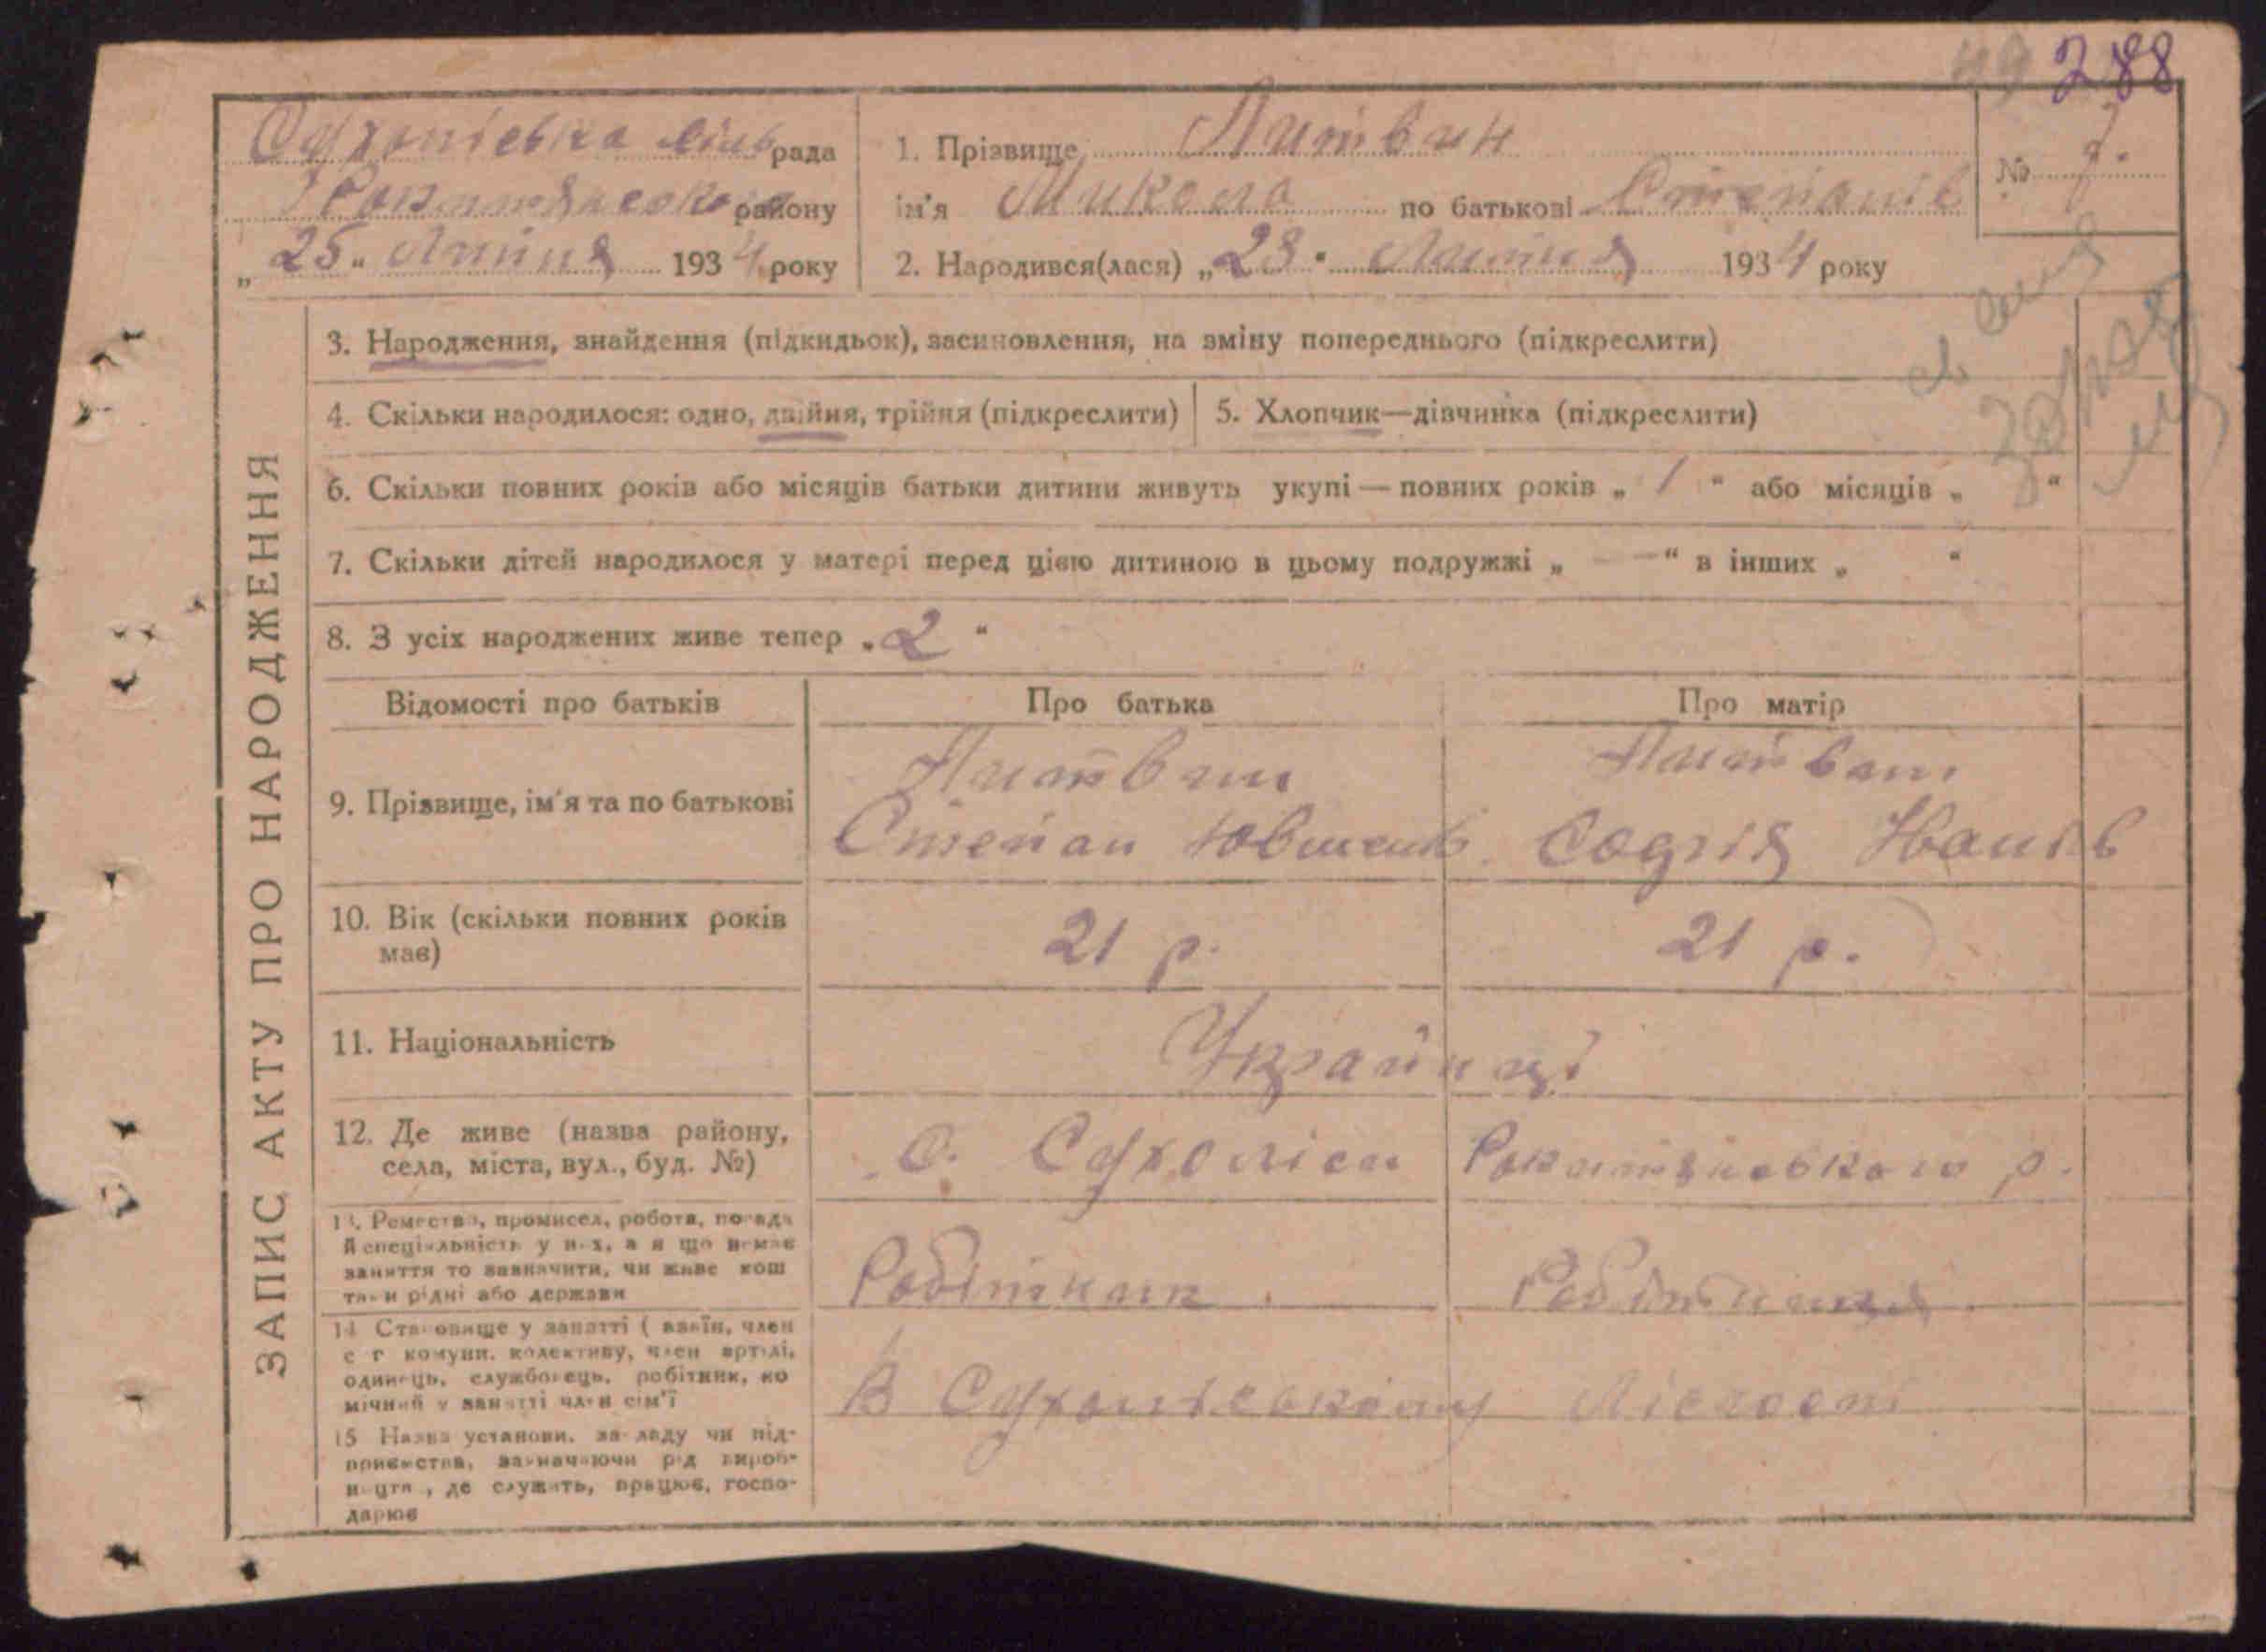 288
Сухоліська сільрада
Рокитнянського району
„25“ Липня 1934 року
1. Прізвище Литвин
ім'я Микола по батькові Степанів
№ 7.
2. Народився(лася) „23“ Липня 1934 року
ЗАПИС АКТУ ПРО НАРОДЖЕННЯ
3. Народження, знайдення (підкидьок), засиновлення, на зміну попереднього (підкреслити)
4. Скільки народилося: одно, двійня, трійня (підкреслити)
5. Хлопчик—дівчинка (підкреслити)
6. Скільки повних років або місяців батьки дитини живуть укупі—повних років „ 1 “ або місяців „ “
7. Скільки дітей народилося у матері перед цією дитиною в цьому подружжі „ — “ в інших „ “
8. З усіх народжених живе тепер „2“
Відомості про батьків Про батька Про матір
9. Прізвище, ім'я та по батькові
Литвин
Степан
Литвин
Софія Іванів
10. Вік (скільки повних років
має)
21 р. 21 р.
11. Національність
Українці
12. Де живе (назва району,
села, міста, вул., буд. №)
С. Сухоліси Рокитнянського р.
13. Ремество, промисел, робота, посада
й спеціяльність у них, а я що немає
заняття то зазначити, чи живе кош
тами рідні або держави
Робітник. Робітниця.
14 Становище у занятті ( хазяїн, член
с г комуни, колективу, член артілі,
одинець, службовець, робітник, по
мічний у занятті член сім'ї
В Сухоліському
15 Назва установи, закладу чи під-
приємства, зазначаючи рід вироб-
ництв, де служить, працює, госпо-
дарює